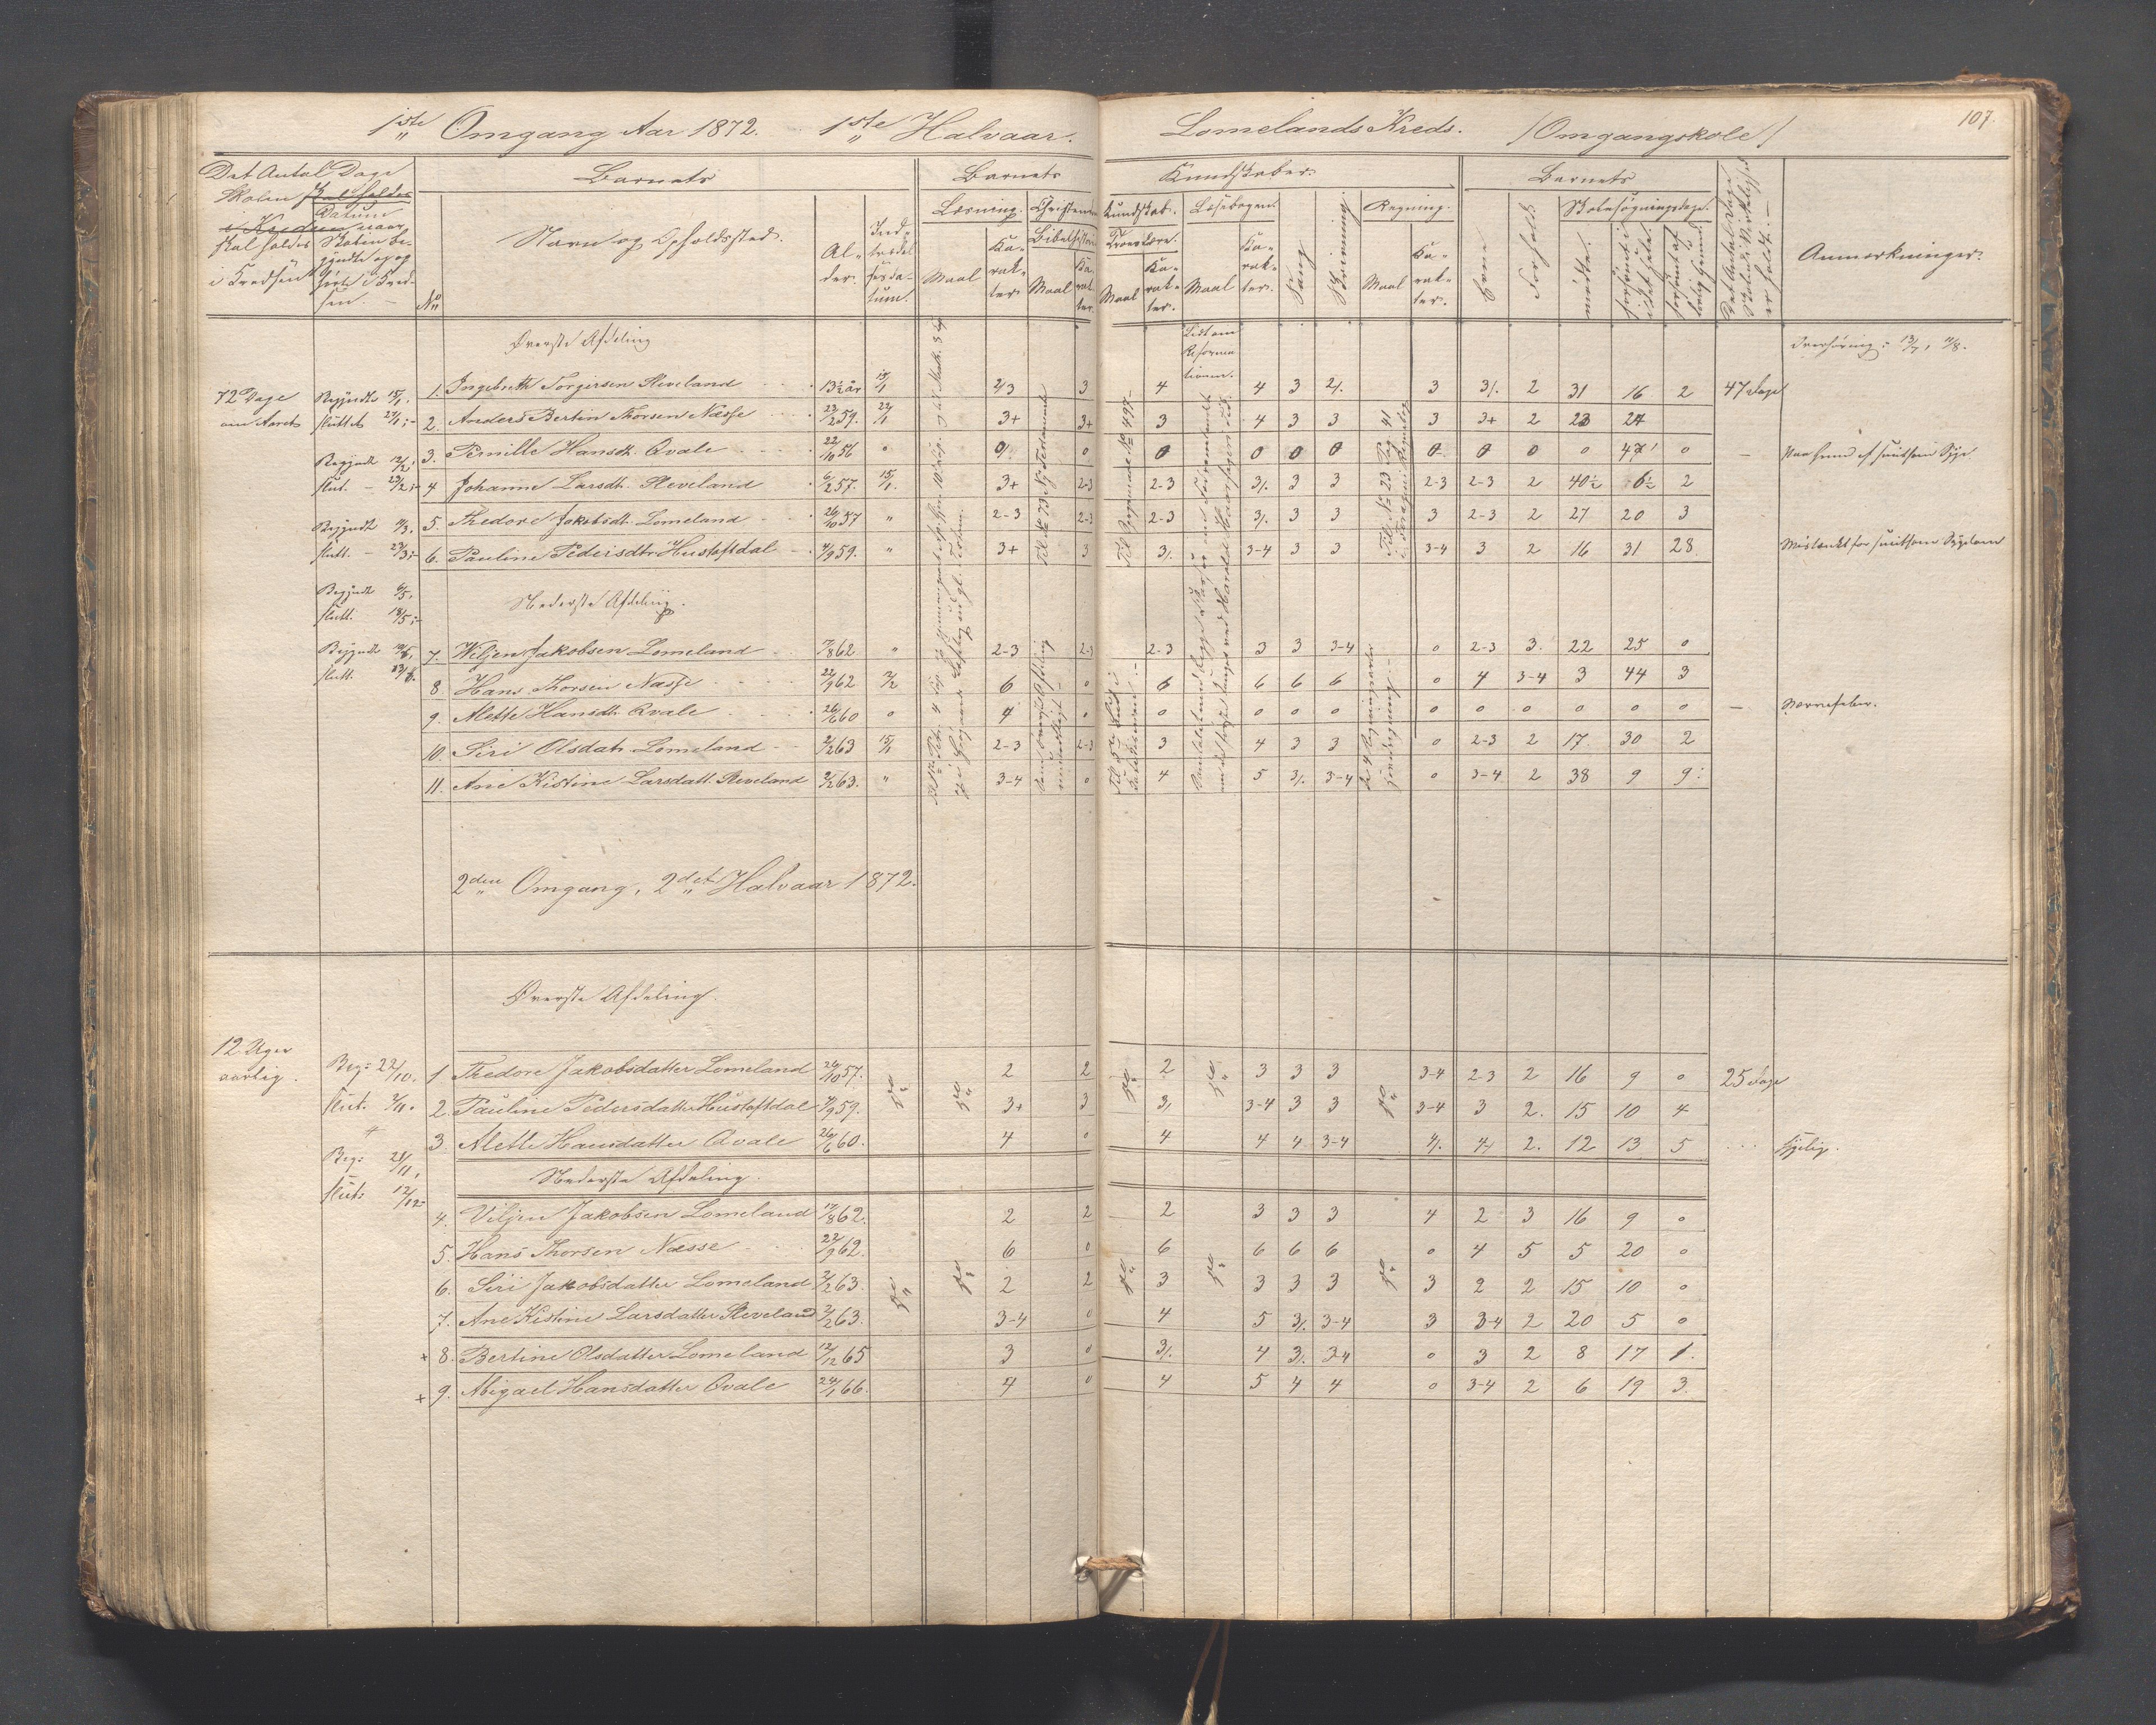 1ste Omgang Aar 1872. 1ste Halvaar. Lomelands Kreds. /Omgangskole/ 107.
Det Antal Dage
Skolen skal holdes
i Kredsen
skal holdes
i Kredsen
Datum
naar
Skolen be-
gyndte og op-
hørte i Kred-
sen.
No
Barnets
Navn og Opholdssted.
Al-
der.
Ind-
trædel
sesda-
tum.
Barnets Kundskaber.
Læsning.
Maal
Ka-
rak-
ter.
Christendoms Kundskab.
Bibelhistorie
Maal
Ka-
rak-
ter.
Troeslære.
Maal
Ka-
rak-
ter.
Læsebogen.
Maal
Ka-
rak-
ter.
Sang
Skrivning.
Regning.
Maal
Ka-
rak-
ter.
Barnets
Evne
Forhold
Skolesøgningsdage.
mødte.
forsømt i
det hele.
forsømt af
lovlig Grund.
Det Antal Dage
Skolen i Virkelighed
er holdt.
Anmærkninger.
Øverste Afdeling
72 Dage
om Aaret
Begyndt 15/1.
sluttet 27/1;
1. Ingebreth Torgersen Sleveland 13½ år 15/1 2/3 3 4 4 3 2/. 3 3/. 2 31 16 2 47 Dage
2. Anders Bertin Thorsen Næsse 23/2 59. 22/1 3+ 3+ 3 4 3 3 3 3+ 2 23 24
Begyndt 12/2,
slut. 23/2;
3. Pernille Hansdt. Qvale 22/10 56 0 0/. 0 0 0 0 0 0 0 0 0 47 0 —
4 Johanne Larsdt. Sleveland 6/2 57. 15/1. 3+ 2-3 2-3 3/. 3 3 2-3 2-3 2 40½ 6½ 2
Begyndt 11/3.
slutt. 23/3;
5. Thedore Jakobsdt. Lomeland 26/10 57 " 2-3 2-3 2-3 3/. 3 3 3 2-3 2 27 20 3
6. Pauline Pedersdtr Hustoftdal 4/9 59. " 3+ 3 3/. 3-4 3 3 3-4 3 2 16 31 28 Mistænkt for smitsom Sygdom
Begyndt 6/5,
slutt. 18/5;
Nederste Afdeling.
7. Wiljen Jakobsen Lomeland 17/8 62 " 2-3 2-3 2-3 3 3 3-4 0 2-3 3. 22 25 0
8 Hans Thorsen Næsse 22/9 62 6 0 6 6 6 6 0 4 3-4 3 44 3
9. Alette Hansdt. Qvale 26/6 60 0 4 0 0 0 0 0 0 0 0 0 0 0 — Nervefeber.
10. Siri Olsdatr. Lomeland 2/2 63 15/1 2-3 2-3 3 4 3 3 0 2-3 2 17 30 2
11. Ane Kistine Larsdatt. Sleveland 2/2 63. " 3-4 0 4 5 3/. 3-4 0 3-4 2 38 9 9
2den Omgang, 2det Halvaar 1872.
Øverste Afdeling.
12 Uger
aarlig.
Beg: 22/10.
Slut. 2/11.
1 Thedore Jakobsdatter Lomeland 26/10 57. 2 2 2 3 3 3 3-4 2-3 2 16 9 0 25 Dage
2. Pauline Pedersdatter Hustoftdal 4/9 59. 3+ 3 3/ 3-4 3 3 3-4 3 2. 15 10 4
3 Alette Hansdatter Qvale 26/6 60. 4 0 4 4 4 3-4 4/. 4 2. 12 13 5 Sygelig.
Beg: 21/11,
Slut: 12/12
Nederste Afdeling.
4. Viljen Jakobsen Lomeland 17/8 62. 2 2 2 3 3 3 4 2 3 16 9 0
5. Hans Thorsen Næsse 22/9 62. 6 0 6 6 6 6 0 4 5 5 20 0
6. Siri Jakobsdatter Lomeland 2/2 63. 2 2 3 3 3 3 3 2 2 15 10 0
7. Ane Kistine Larsdatter Sleveland 2/2 63. 3-4 0 4 5 3/. 3-4 3 3-4 2 20 5 0
+ 8. Bertine Olsdatter Lomeland 12/12 65 3 0 3/. 4 3/. 3-4 0 3 2 8 17 1.
+ 9. Abigael Hansdatter Qvale 24/1 66. 4 0 4 5 4 4 0 3-4 2 6 19 3.